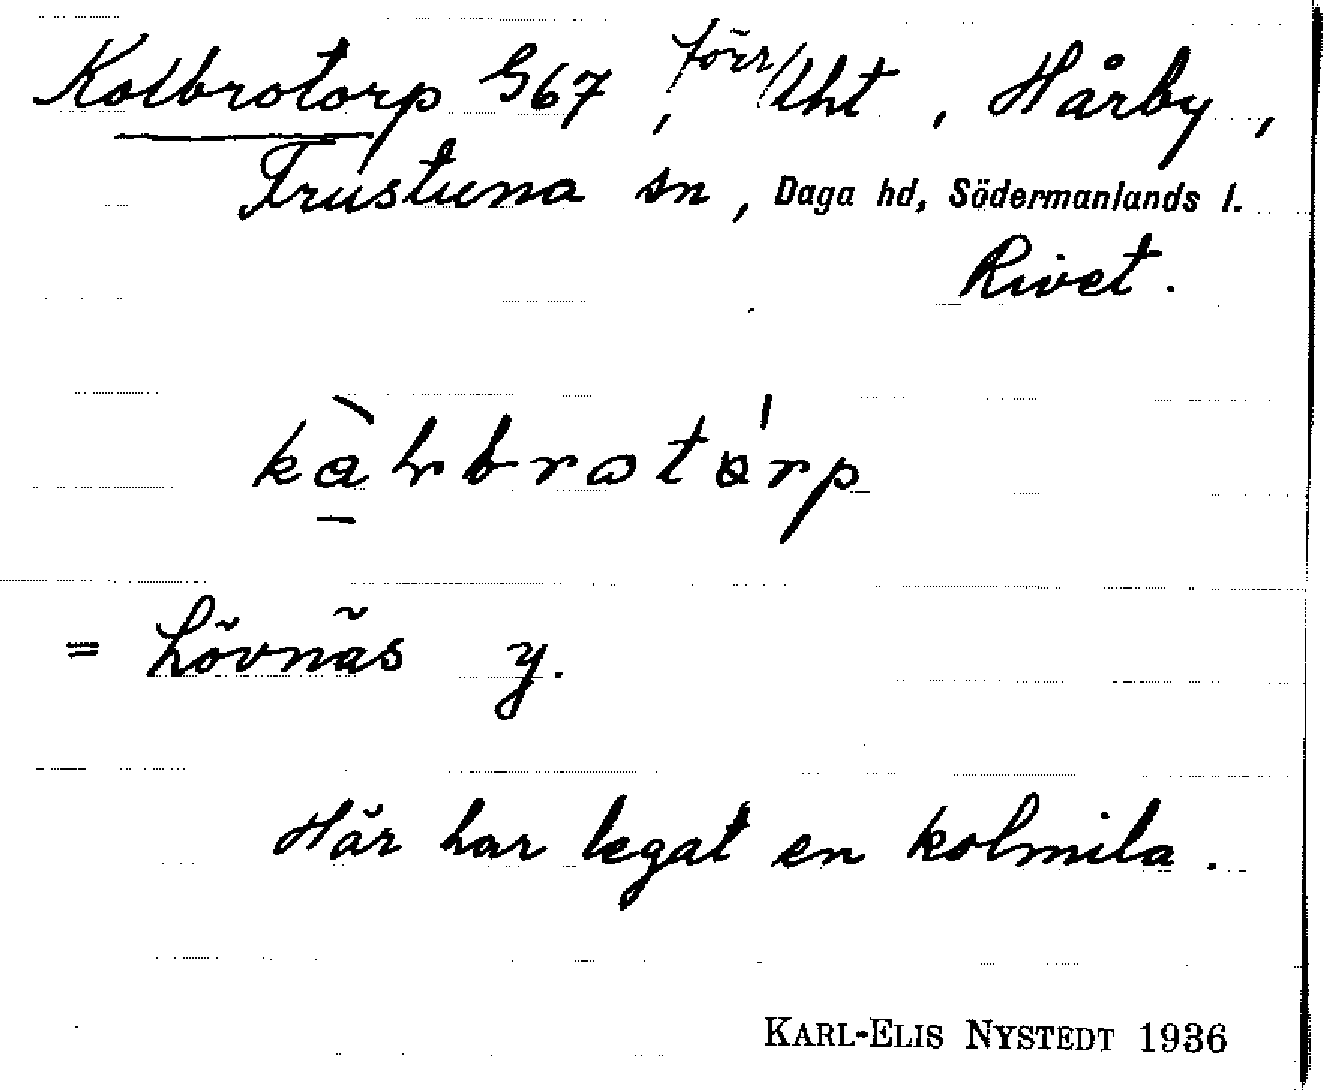 Kolbrotorp G67, förr/lht, Hårby,
Frustuna sn, Daga hd, Södermanlands l.
Rivet.
kàlbrotórp
= Lövnäs y.
Här har legat en kolmila.
KARL-ELIS NYSTEDT 1936